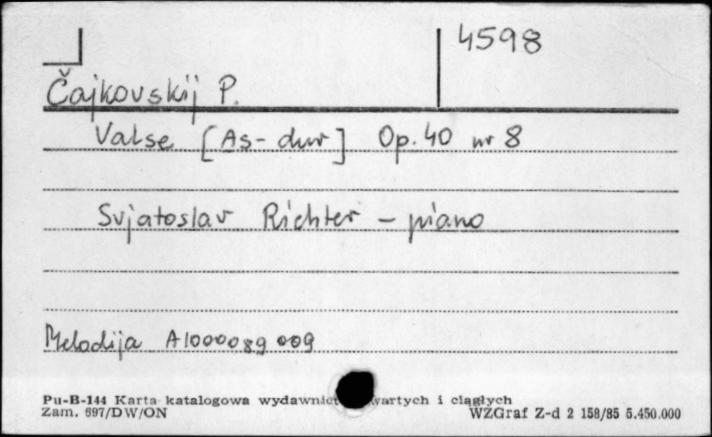 4598
Čajkovskij P.
Valse [As-dur] Op. 40 nr 8
Svjatoslav Richter - piano
Melodija A1000089 009
Pu-B-144 Karta katalogowa wydawnict wartych i ciągłych
Zam. 697/DW/ON WZGraf Z-d 2 158/85 5.450.000